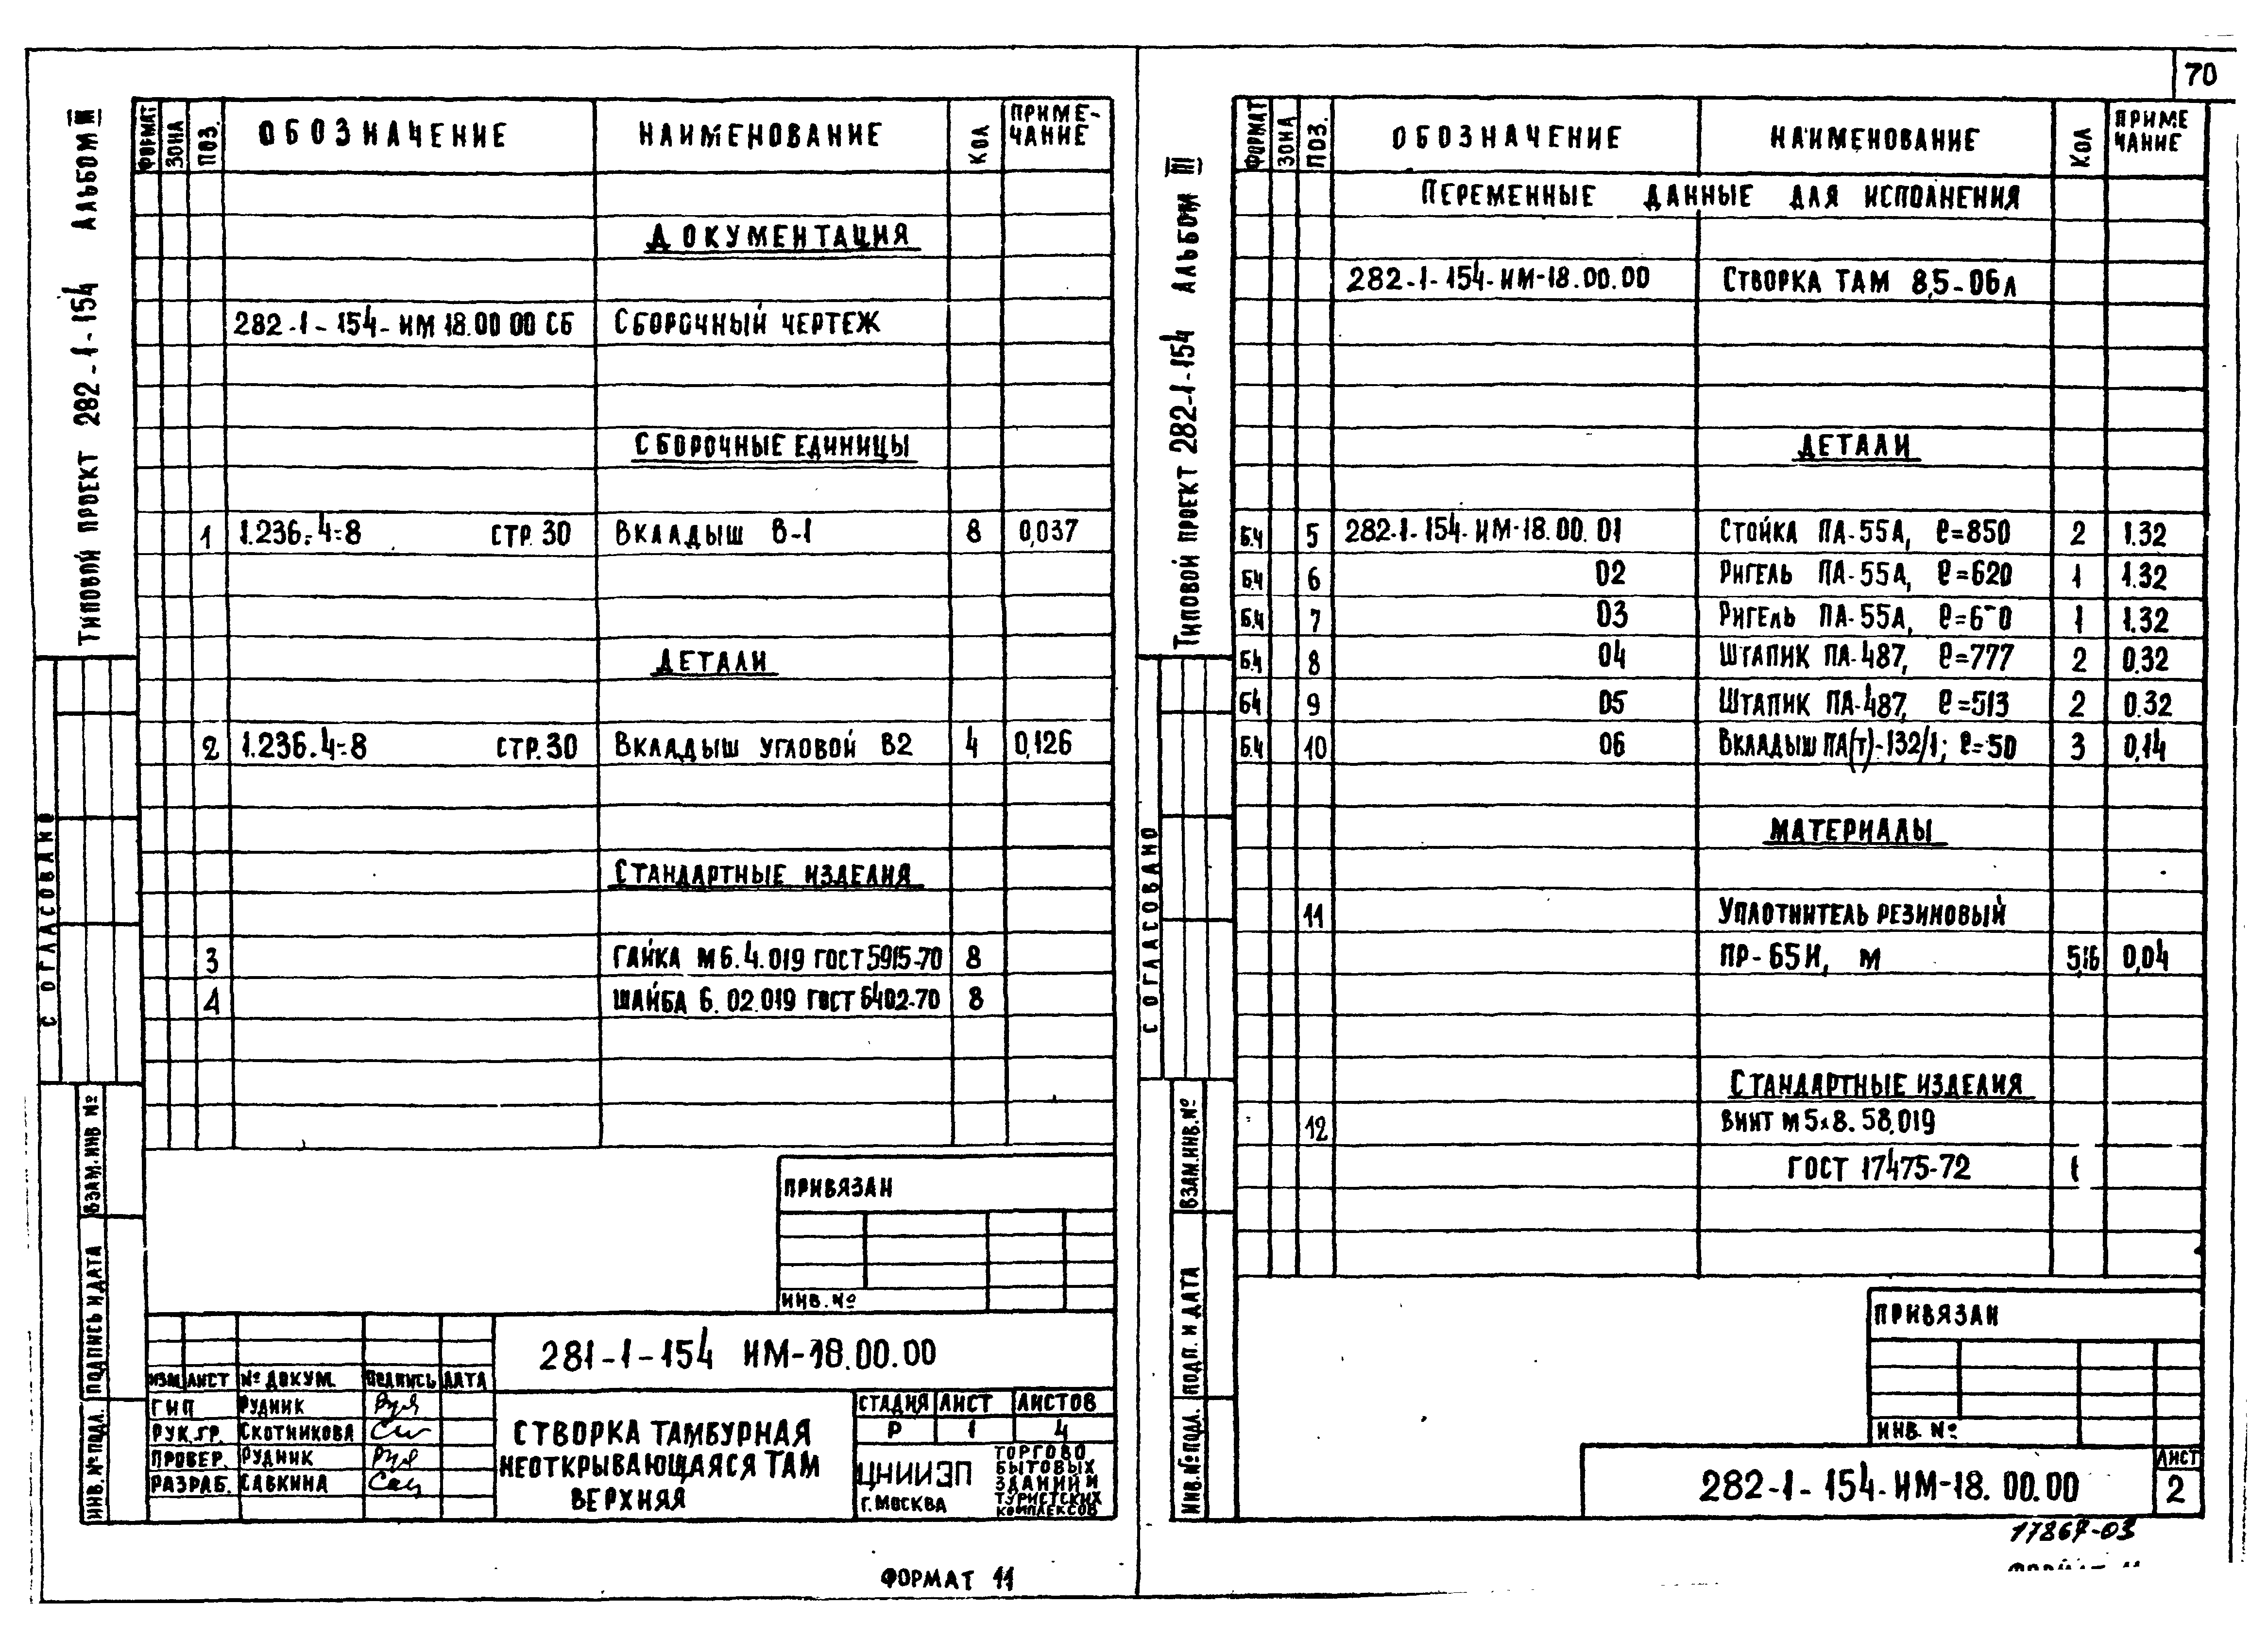 70
Типовой проект 282-1-154 Альбом III
ФОРМАТ ЗОНА ПОЗ. ОБОЗНАЧЕНИЕ НАИМЕНОВАНИЕ КОЛ ПРИМЕ-ЧАНИЕ
ДОКУМЕНТАЦИЯ
282-1-154-ИМ 18.00 00 СБ СБОРОЧНЫЙ ЧЕРТЕЖ
СБОРОЧНЫЕ ЕДИНИЦЫ
1 1.236.4-8 СТР. 30 ВКЛАДЫШ В-1 8 0,037
ДЕТАЛИ
2 1.236.4-8 СТР.30 ВКЛАДЫШ УГЛОВОЙ В2 4 0,126
СТАНДАРТНЫЕ ИЗДЕЛИЯ
3 ГАЙКА М6.4.019 ГОСТ 5915-70 8
4 ШАЙБА 6.02.019 ГОСТ 6402-70 8
СОГЛАСОВАНО
ВЗАМ.ИНВ №
ПОДПИСЬ И ДАТА
ИНВ.№ ПОДЛ.
ПРИВЯЗАН
ИНВ.№
281-1-154 ИМ-18.00.00
ИЗМ ЛИСТ № ДОКУМ. ПОДПИСЬ ДАТА
ГИП РУДНИК
РУК.ГР. СКОТНИКОВА
ПРОВЕР. РУДНИК
РАЗРАБ. САВКИНА
СТВОРКА ТАМБУРНАЯ
НЕОТКРЫВАЮЩАЯСЯ ТАМ
ВЕРХНЯЯ
СТАДИЯ ЛИСТ ЛИСТОВ
Р 1 4
ЦНИИЭП
Г. МОСКВА
ТОРГОВО
БЫТОВЫХ
ЗДАНИЙ И
ТУРИСТСКИХ
КОМПЛЕКСОВ
ФОРМАТ 11
Типовой проект 282-1-154 Альбом III
ФОРМАТ ЗОНА ПОЗ. ОБОЗНАЧЕНИЕ НАИМЕНОВАНИЕ КОЛ ПРИМЕ ЧАНИЕ
ПЕРЕМЕННЫЕ ДАННЫЕ ДЛЯ ИСПОЛНЕНИЯ
282-1-154-ИМ-18.00.00 СТВОРКА ТАМ 8,5-06Л
ДЕТАЛИ
Б.Ч 5 282-1-154-ИМ-18.00.01 СТОЙКА ПА-55А, ℓ=850 2 1.32
Б.Ч 6 02 РИГЕЛЬ ПА-55А, ℓ=620 1 1.32
Б.Ч 7 03 РИГЕЛЬ ПА-55А, 1 1.32
Б.Ч 8 04 ШТАПИК ПА-487, ℓ=777 2 0.32
БЧ 9 05 ШТАПИК ПА-487, ℓ=513 2 0.32
Б.Ч 10 06 ВКЛАДЫШ ПА(Т)-132/1; ℓ=50 3 0,14
МАТЕРИАЛЫ
11 УПЛОТНИТЕЛЬ РЕЗИНОВЫЙ
ПР-65И, М 5,16 0,04
СТАНДАРТНЫЕ ИЗДЕЛИЯ
12 ВИНТ М5х8.58.019
ГОСТ 17475-72 1
СОГЛАСОВАНО
ВЗАМ.ИНВ.№
ПОДП. И ДАТА
ИНВ.№ПОДЛ.
ПРИВЯЗАН
ИНВ. №
282-1-154-ИМ-18.00.00
ЛИСТ
2
17867-03